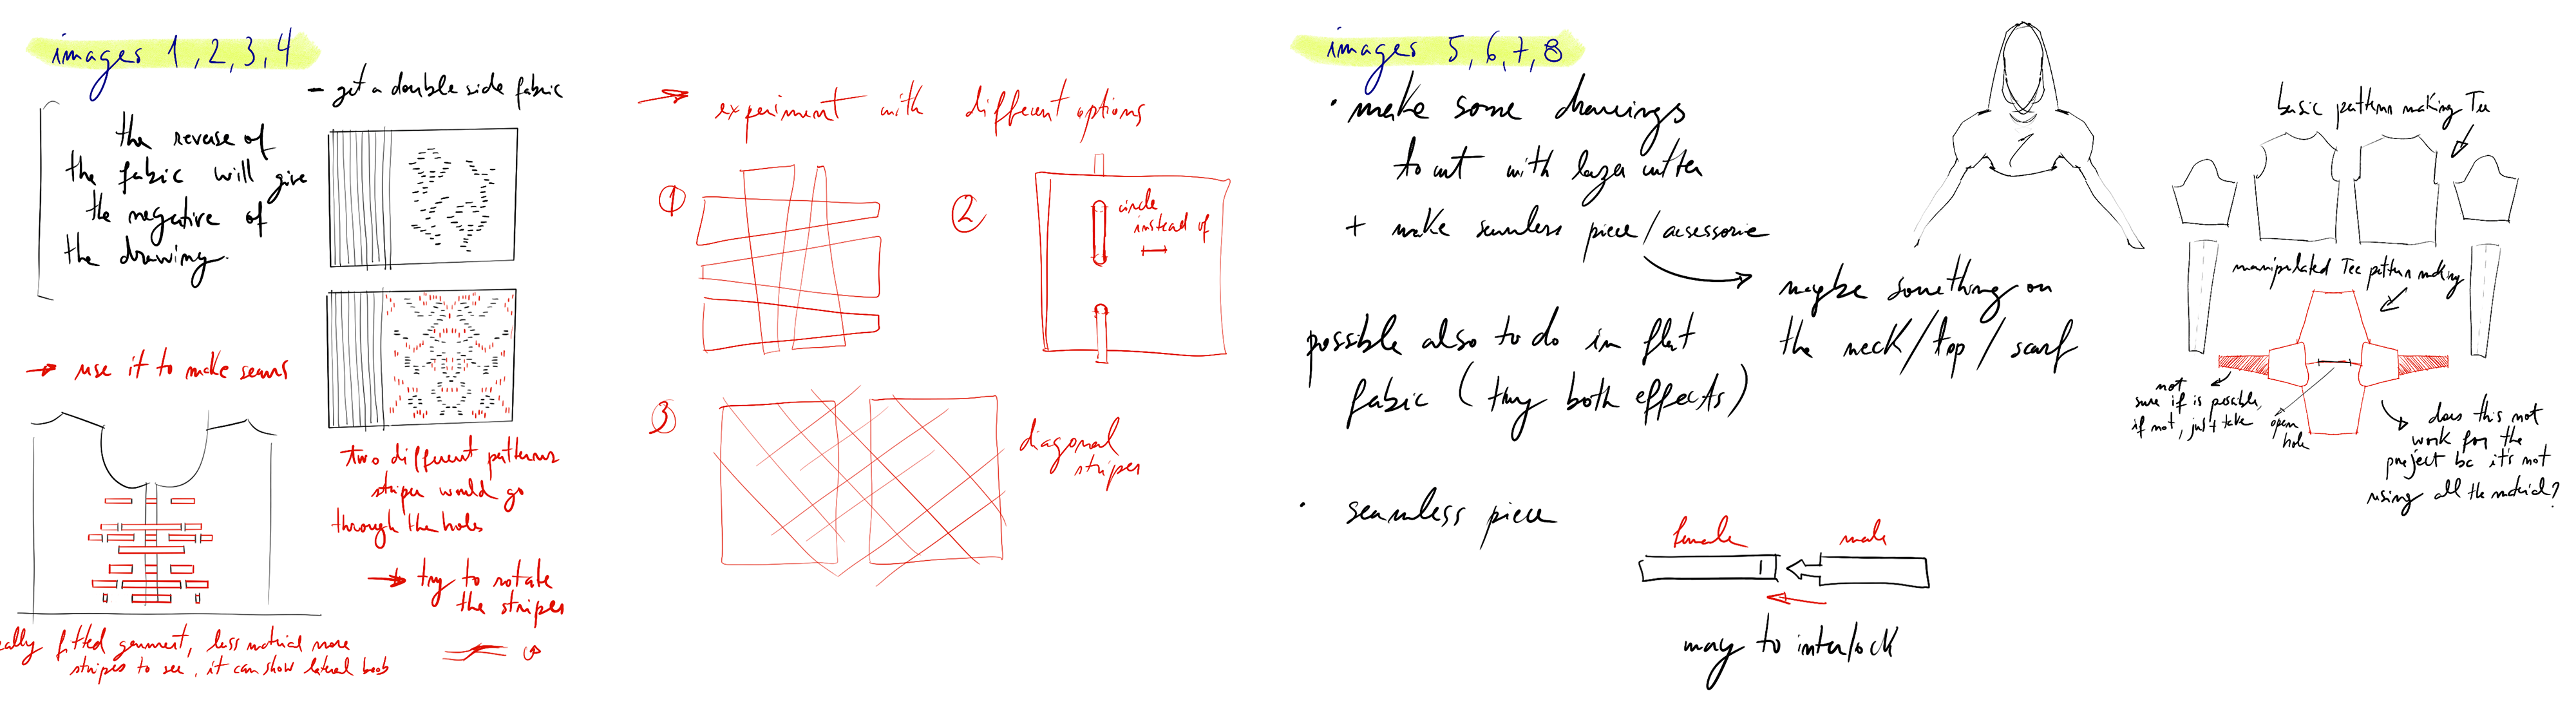 images 1,2,3,4
- get a double side fabric
the reverse of
the fabric will give
the negative of
the drawing.
→ use it to make seams
two different patterns
stripes would go
through the holes
→ try to rotate
the stripes
fitted garment, less material more
stripes to see, it can show lateral boob
→ experiment with different options
1
2
circle
instead of
3
diagonal
stripes
images 5,6,7,8
• make some drawings
to cut with lazer cutter
+ make seamless piece/accessorie
maybe something on
the neck/top/scarf
possible also to do in flat
fabric (try both effects)
• seamless piece
female
male
way to interlock
basic pattern making Tee
manipulated Tee pattern making
not
sure if is possible,
if not, just take
open
hole
does this not
work for the
project bc it's not
using all the material?